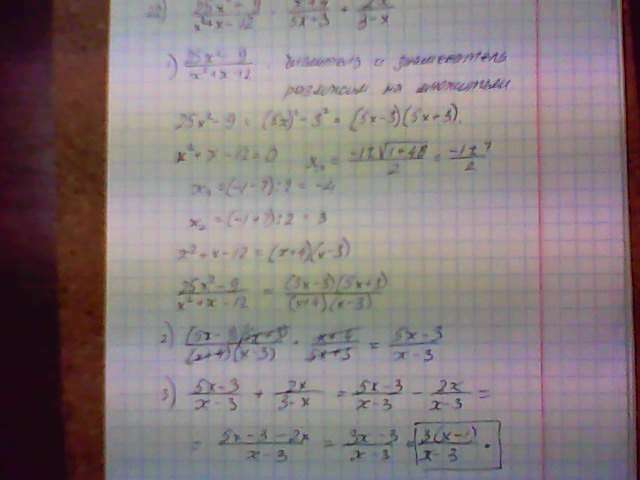 22) (25x² - 9)/(x²+x-12) · (x+4)/(5x+3) + 2x/(3-x)
1) (25x² - 9)/(x²+x-12) числитель и знаменатель
разложим на множители
25x² - 9 = (5x)² - 3² = (5x-3)(5x+3).
x² + x - 12 = 0 x₁,₂ = (-1±√(1+48))/2 = (-1±7)/2
x₁ = (-1-7):2 = -4
x₂ = (-1+7):2 = 3
x² + x - 12 = (x+4)(x-3)
(25x² - 9)/(x²+x-12) = (5x-3)(5x+3)/((x+4)(x-3))
2) (5x-3)(5x+3)/((x+4)(x-3)) · (x+4)/(5x+3) = (5x-3)/(x-3)
3) (5x-3)/(x-3) + 2x/(3-x) = (5x-3)/(x-3) - 2x/(x-3) =
= (5x-3-2x)/(x-3) = (3x-3)/(x-3) = 3(x-1)/(x-3).